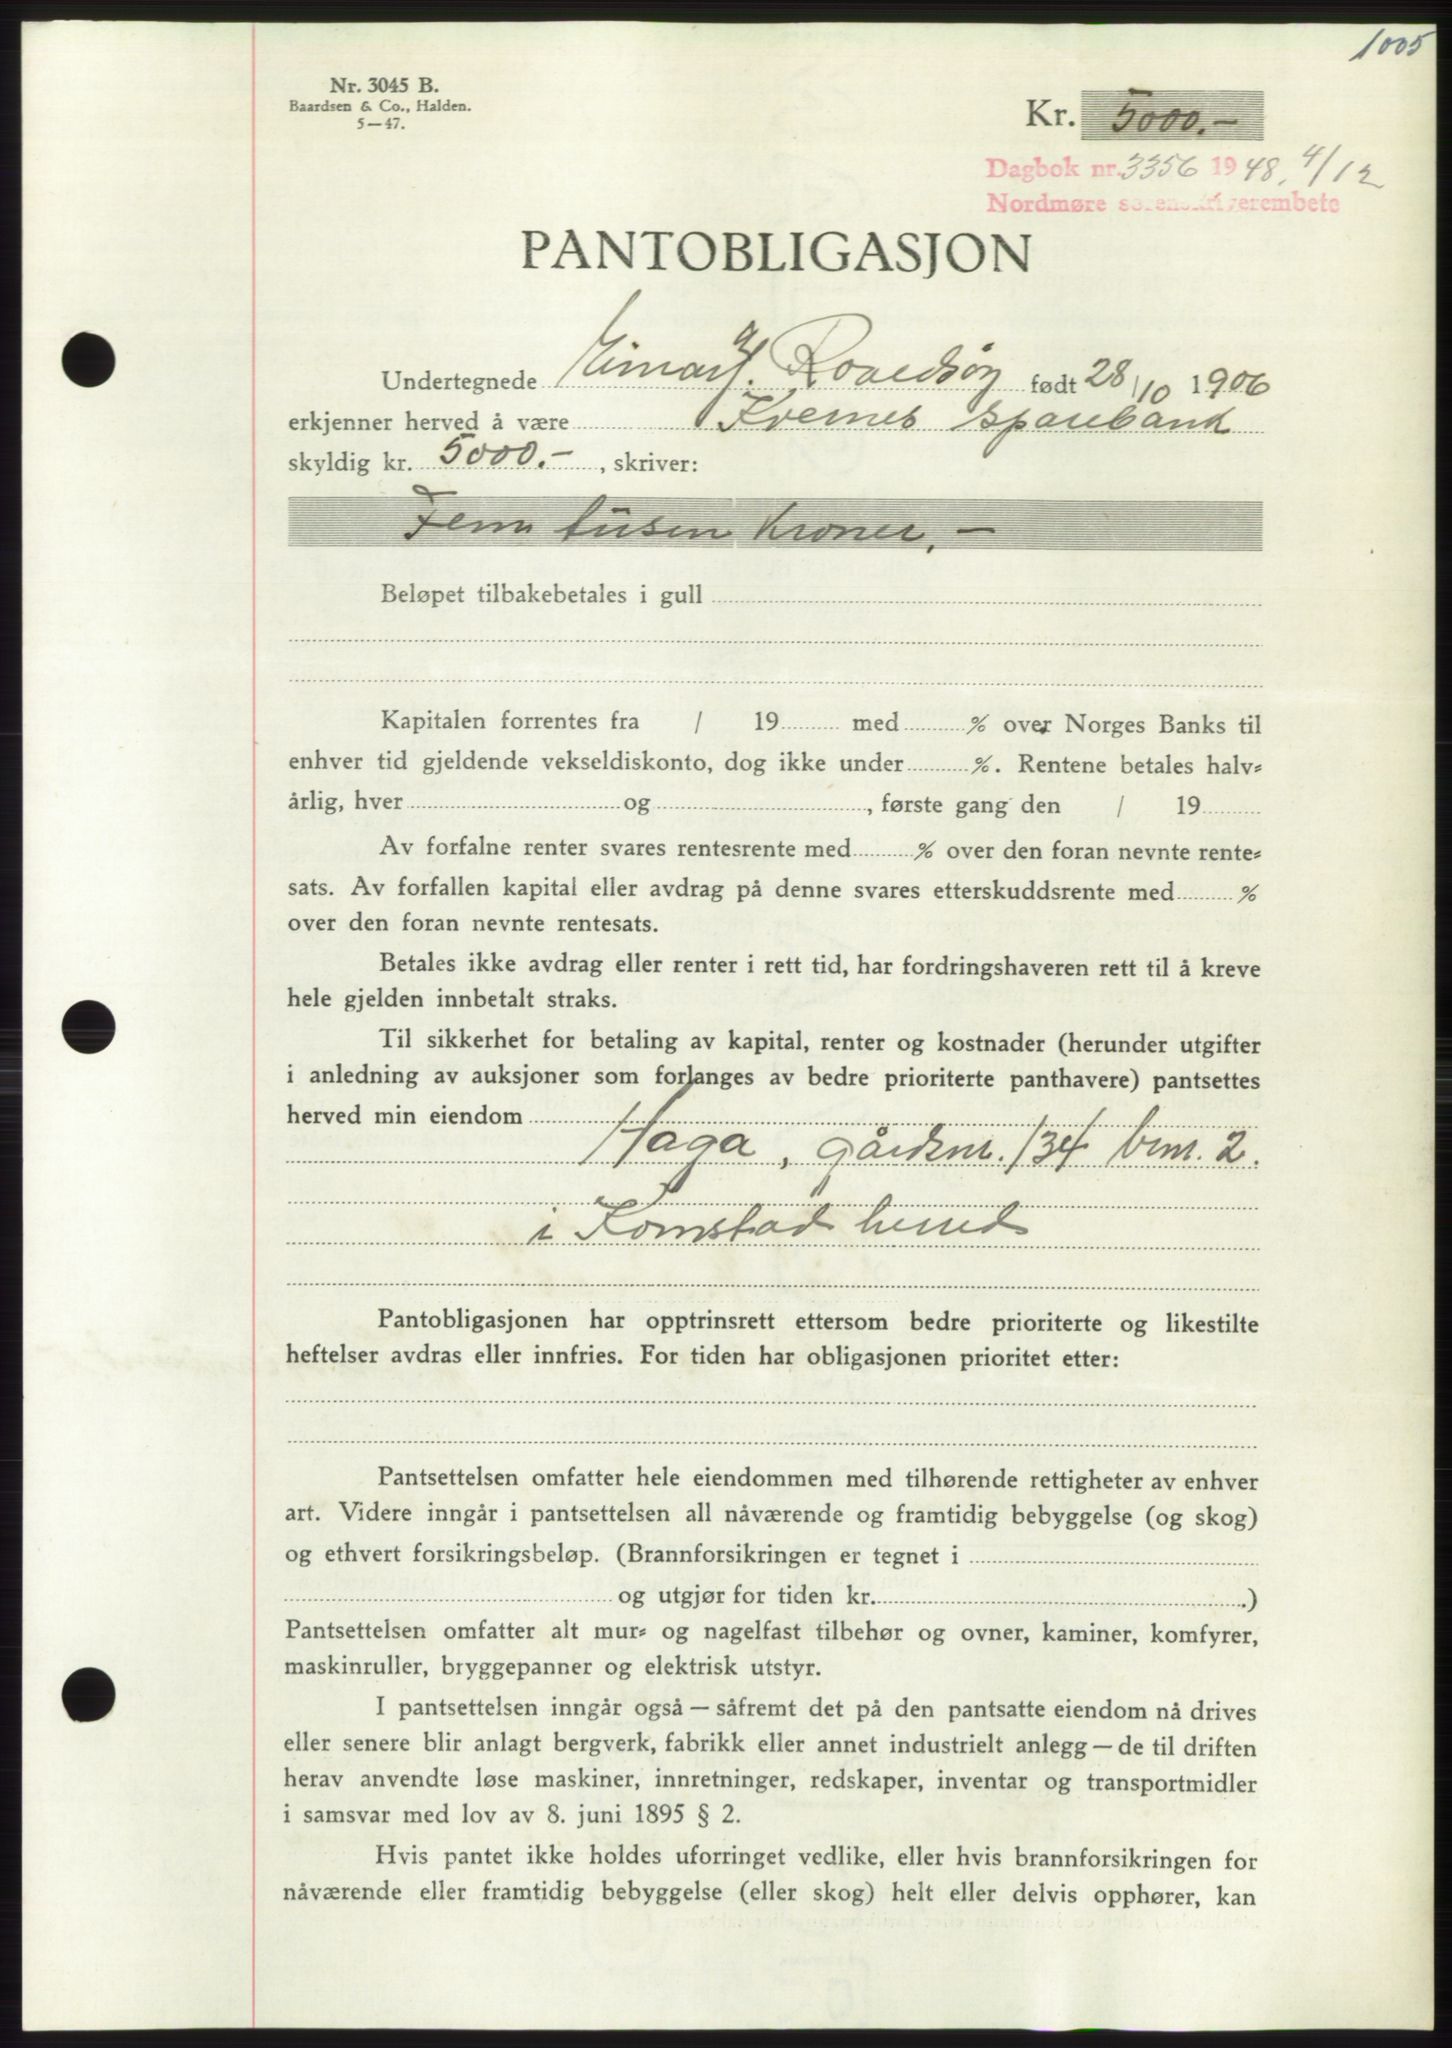 1005
Nr. 3045 B.
Baardsen & Co., Halden.
5—47.
Kr. 5000.-
Dagbok nr. 3356 1948, 4/12
Nordmøre sorenskriverembete
PANTOBLIGASJON
Undertegnede født 28/10 1906
erkjenner herved å være Kvernes sparebank
skyldig kr. 5000.-, skriver:
Fem tusen kroner. -
Beløpet tilbakebetales i gull
Kapitalen forrentes fra / 19 med % over Norges Banks til
enhver tid gjeldende vekseldiskonto, dog ikke under %. Rentene betales halv-
årlig, hver og , første gang den / 19
Av forfalne renter svares rentesrente med % over den foran nevnte rente-
sats. Av forfallen kapital eller avdrag på denne svares etterskuddsrente med %
over den foran nevnte rentesats.
Betales ikke avdrag eller renter i rett tid, har fordringshaveren rett til å kreve
hele gjelden innbetalt straks.
Til sikkerhet for betaling av kapital, renter og kostnader (herunder utgifter
i anledning av auksjoner som forlanges av bedre prioriterte panthavere) pantsettes
herved min eiendom
Haga, gårdsnr. 134 brnr. 2.
i Kornstad herred
Pantobligasjonen har opptrinsrett ettersom bedre prioriterte og likestilte
heftelser avdras eller innfries. For tiden har obligasjonen prioritet etter:
Pantsettelsen omfatter hele eiendommen med tilhørende rettigheter av enhver
art. Videre inngår i pantsettelsen all nåværende og framtidig bebyggelse (og skog)
og ethvert forsikringsbeløp. (Brannforsikringen er tegnet i
og utgjør for tiden kr. .)
Pantsettelsen omfatter alt mur- og nagelfast tilbehør og ovner, kaminer, komfyrer,
maskinruller, bryggepanner og elektrisk utstyr.
I pantsettelsen inngår også — såfremt det på den pantsatte eiendom nå drives
eller senere blir anlagt bergverk, fabrikk eller annet industrielt anlegg — de til driften
herav anvendte løse maskiner, innretninger, redskaper, inventar og transportmidler
i samsvar med lov av 8. juni 1895 § 2.
Hvis pantet ikke holdes uforringet vedlike, eller hvis brannforsikringen for
nåværende eller framtidig bebyggelse (eller skog) helt eller delvis opphører, kan